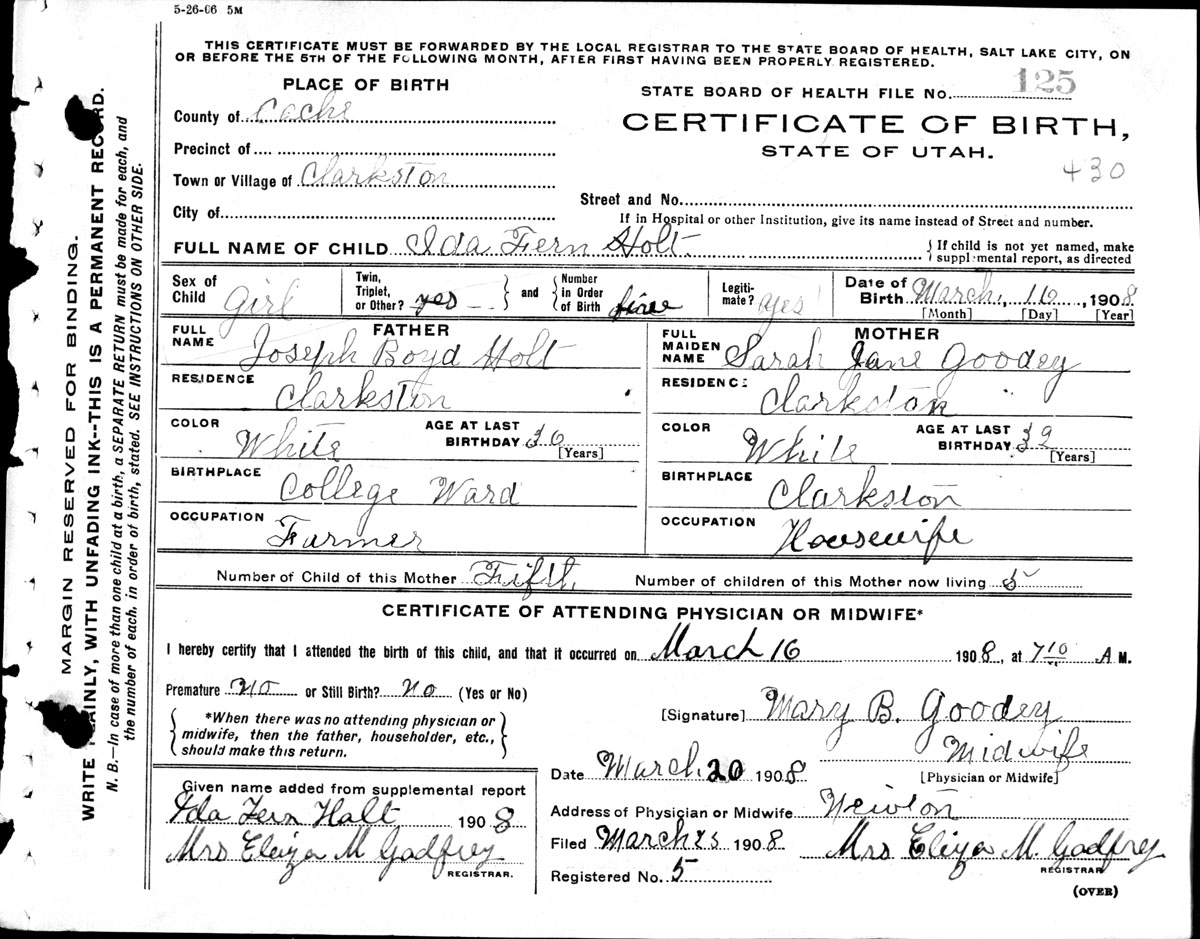 5-26-06 5M
THIS CERTIFICATE MUST BE FORWARDED BY THE LOCAL REGISTRAR TO THE STATE BOARD OF HEALTH, SALT LAKE CITY, ON
OR BEFORE THE 5TH OF THE FOLLOWING MONTH, AFTER FIRST HAVING BEEN PROPERLY REGISTERED.
PLACE OF BIRTH
STATE BOARD OF HEALTH FILE No. 125
County of Cache
CERTIFICATE OF BIRTH,
STATE OF UTAH.
Precinct of
430
Town or Village of Clarkston
Street and No.
City of
If in Hospital or other Institution, give its name instead of Street and number.
FULL NAME OF CHILD Ida Fern Holt
If child is not yet named, make
supplemental report, as directed
Sex of Child Girl Twin, Triplet, or Other? yes and Number in Order of Birth five Legiti- mate? yes Date of Birth March, 16, 1908
[Month] [Day] [Year]
FATHER
FULL NAME Joseph Boyd Holt
MOTHER
FULL MAIDEN NAME Sarah Jane Goodey
RESIDENCE Clarkston
RESIDENCE Clarkston
COLOR White AGE AT LAST BIRTHDAY 36 [Years]
COLOR White AGE AT LAST BIRTHDAY 32 [Years]
BIRTHPLACE College Ward
BIRTHPLACE Clarkston
OCCUPATION Farmer
OCCUPATION Housewife
Number of Child of this Mother Fifth Number of children of this Mother now living 5
CERTIFICATE OF ATTENDING PHYSICIAN OR MIDWIFE*
I hereby certify that I attended the birth of this child, and that it occurred on March 16 1908, at 7 10 A M.
Premature no or Still Birth? no (Yes or No)
*When there was no attending physician or
midwife, then the father, householder, etc.,
should make this return.
[Signature] Mary B. Goodey
Midwife
Date March 20 1908 [Physician or Midwife]
Given name added from supplemental report
Ida Fern Holt 1908
Mrs Eliza M Godfrey
REGISTRAR.
Address of Physician or Midwife Newton
Filed March 1908 Mrs Eliza M. Godfrey
REGISTRAR
Registered No. 5
(OVER)
MARGIN RESERVED FOR BINDING.
WRITE PLAINLY, WITH UNFADING INK--THIS IS A PERMANENT RECORD.
N. B.—In case of more than one child at a birth, a SEPARATE RETURN must be made for each, and
the number of each, in order of birth, stated. SEE INSTRUCTIONS ON OTHER SIDE.